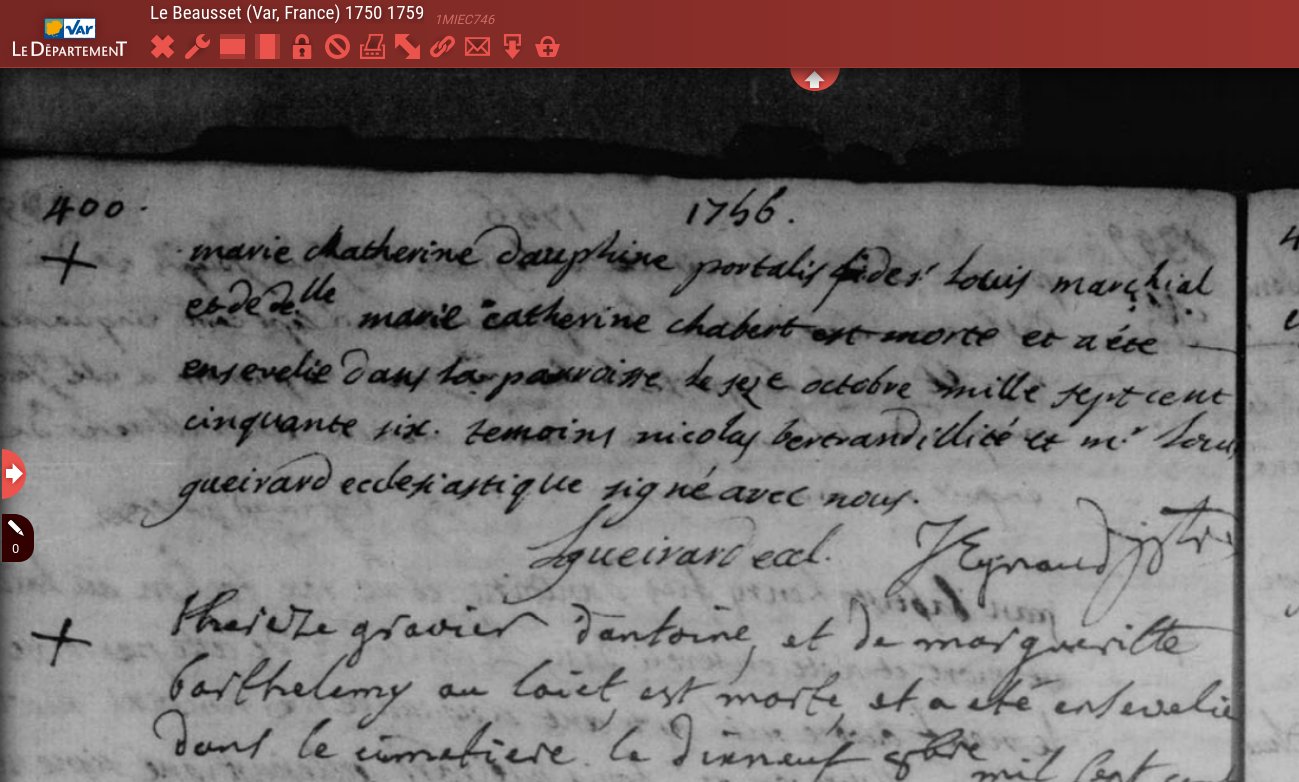 Le Beausset (Var, France) 1750 1759 1MIEC746
VAR
LE DÉPARTEMENT
400.
1756.
marie chatherine dauphine portalis f. de sr louis marchial
et de delle marie catherine chabert est morte et a éte
ensevelie dans la parroisse le seze octobre mille sept cent
cinquante six. temoins nicolas bertrand illité et mr. Louis
gueirard ecclesiastique signé avec nous.
Lgueirard eccl. JEynaud
0
thereze gravier d'antoine, et de margueritte
barthelemy au est morte, et a eté ensevelie
dans le cimetiere le dixneuf 8bre
mil sept